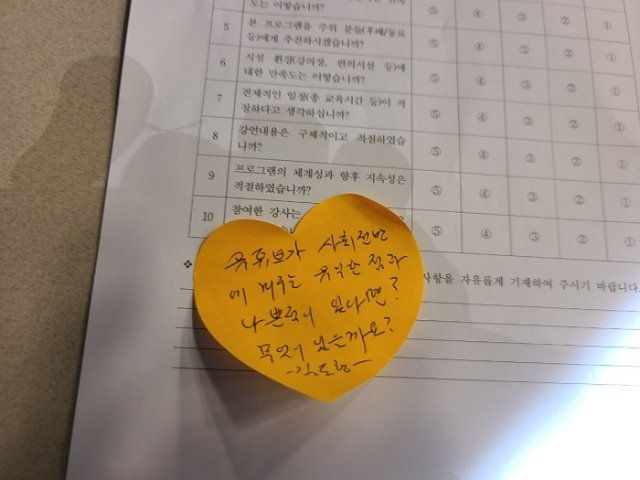 도는 어떻습니까? ⑤ ④ ③ ② ①
5 본 프로그램을 주위 분들(후배/동료 등)에게 추천하시겠습니까? ⑤ ④ ③ ② ①
6 시설 환경(강의장, 편의시설 등)에 대한 만족도는 어떻습니까? ⑤ ④ ③ ② ①
7 전체적인 일정(총 교육시간 등)이 적절하다고 생각하십니까? ⑤ ④ ③ ② ①
8 강연내용은 구체적이고 적절하였습니까? ⑤ ④ ③ ② ①
9 프로그램의 체계성과 향후 지속성은 적절하였습니까? ⑤ ④ ③ ② ①
10 참여한 강사는 ⑤ ④ ③ ② ①
사항을 자유롭게 기재하여 주시기 바랍니다.
사회전반
에 미치는 유익한 점과
나쁜점이 있다면?
무엇이 있을까요?